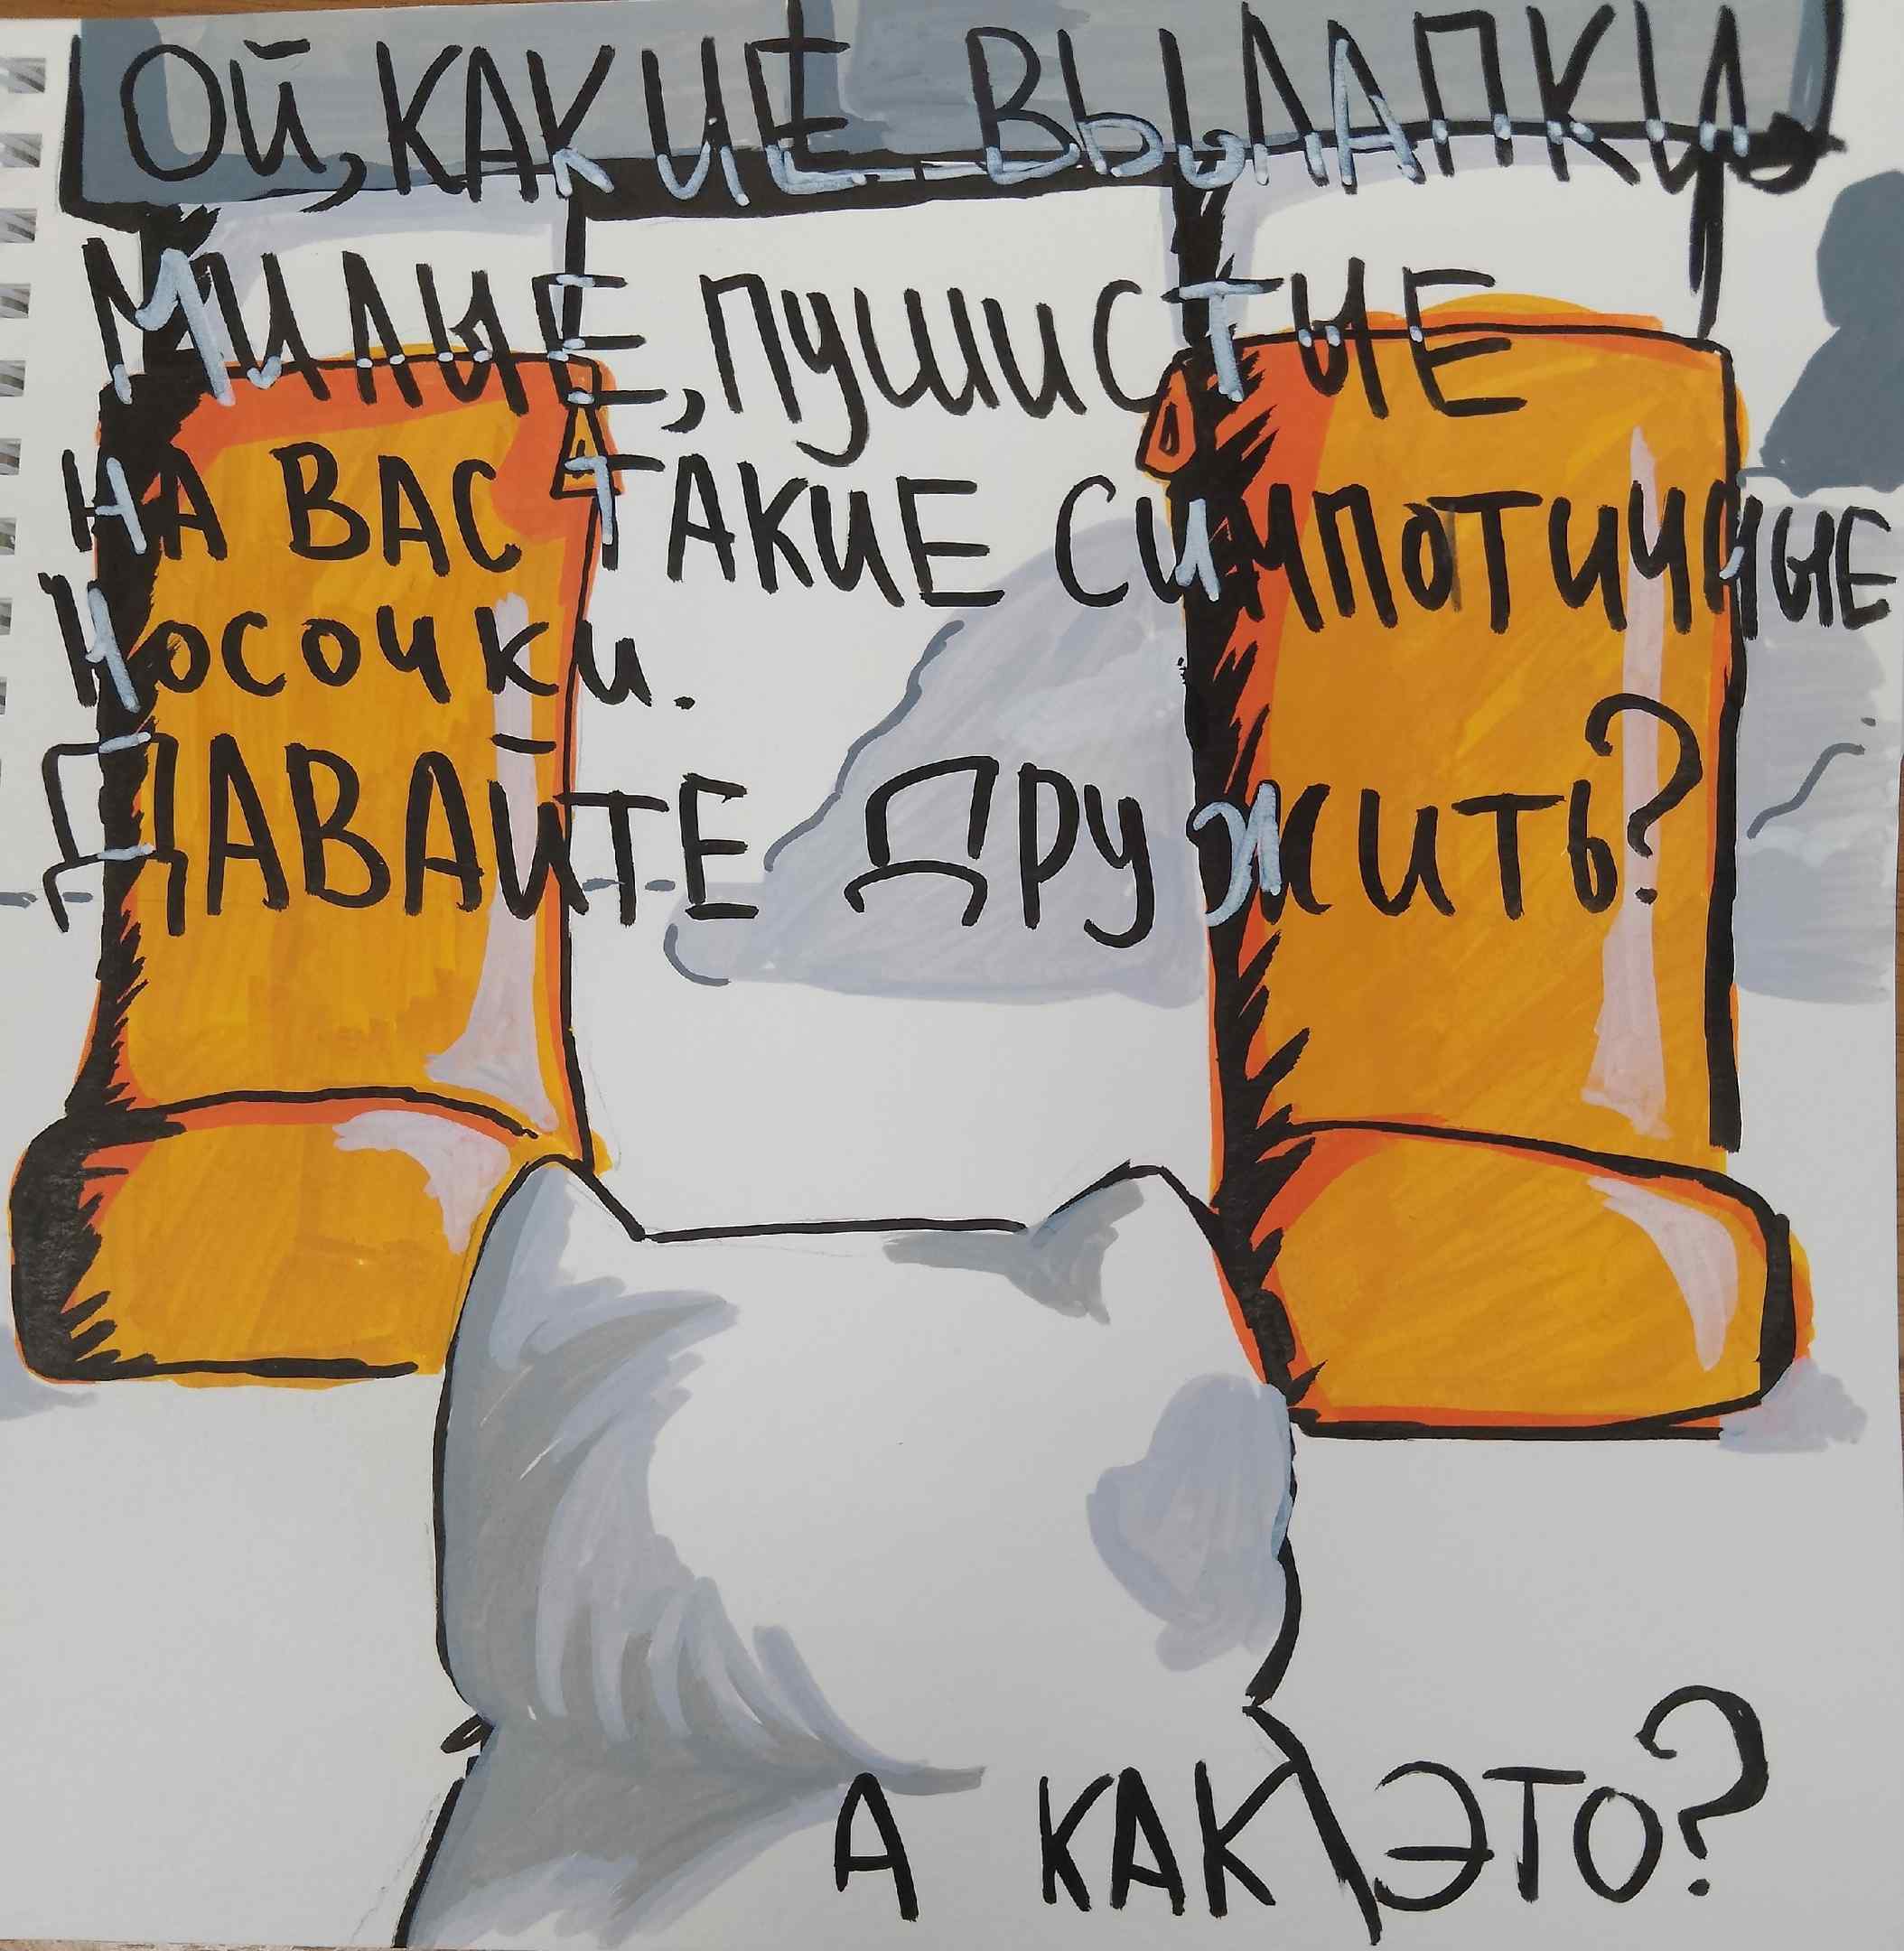 ОЙ, КАКИЕ ВЫ ЛАПКИ,
МИЛЫЕ, ПУШИСТЫЕ
НА ВАС ТАКИЕ СИМПОТИЧНЫЕ
НОСОЧКИ.
ДАВАЙТЕ ДРУЖИТЬ?
А КАК ЭТО?